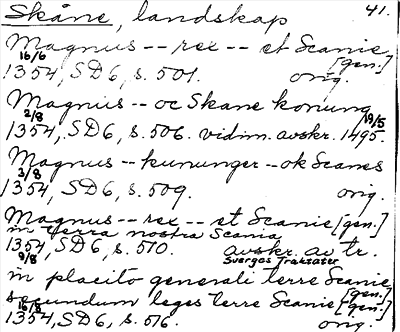 Skåne, landskap 41.
Magnus -- rex -- et Scanie [gen.]
16/6
1354, SD6, s. 501. orig.
Magnus -- oc Skane konung
2/8 19/5
1354, SD6, s. 506. vidim. avskr. 1495.
Magnus -- kununger -- ok Scanes
3/8
1354, SD6, s. 509. orig.
Magnus -- rex -- et Scanie [gen.]
in terra nostra Scania
1354, SD6, s. 510. avskr. av tr.
9/8 Sverges Traktater
in placito generali terre Scanie [gen.]
secundum leges terre Scanie [gen.]
16/8
1354, SD6, s. 516. orig.